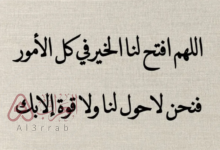 اللهم افتح لنا الخير في كل الأمور
فنحن لا حول لنا ولا قوة إلا بك
Al3rrab